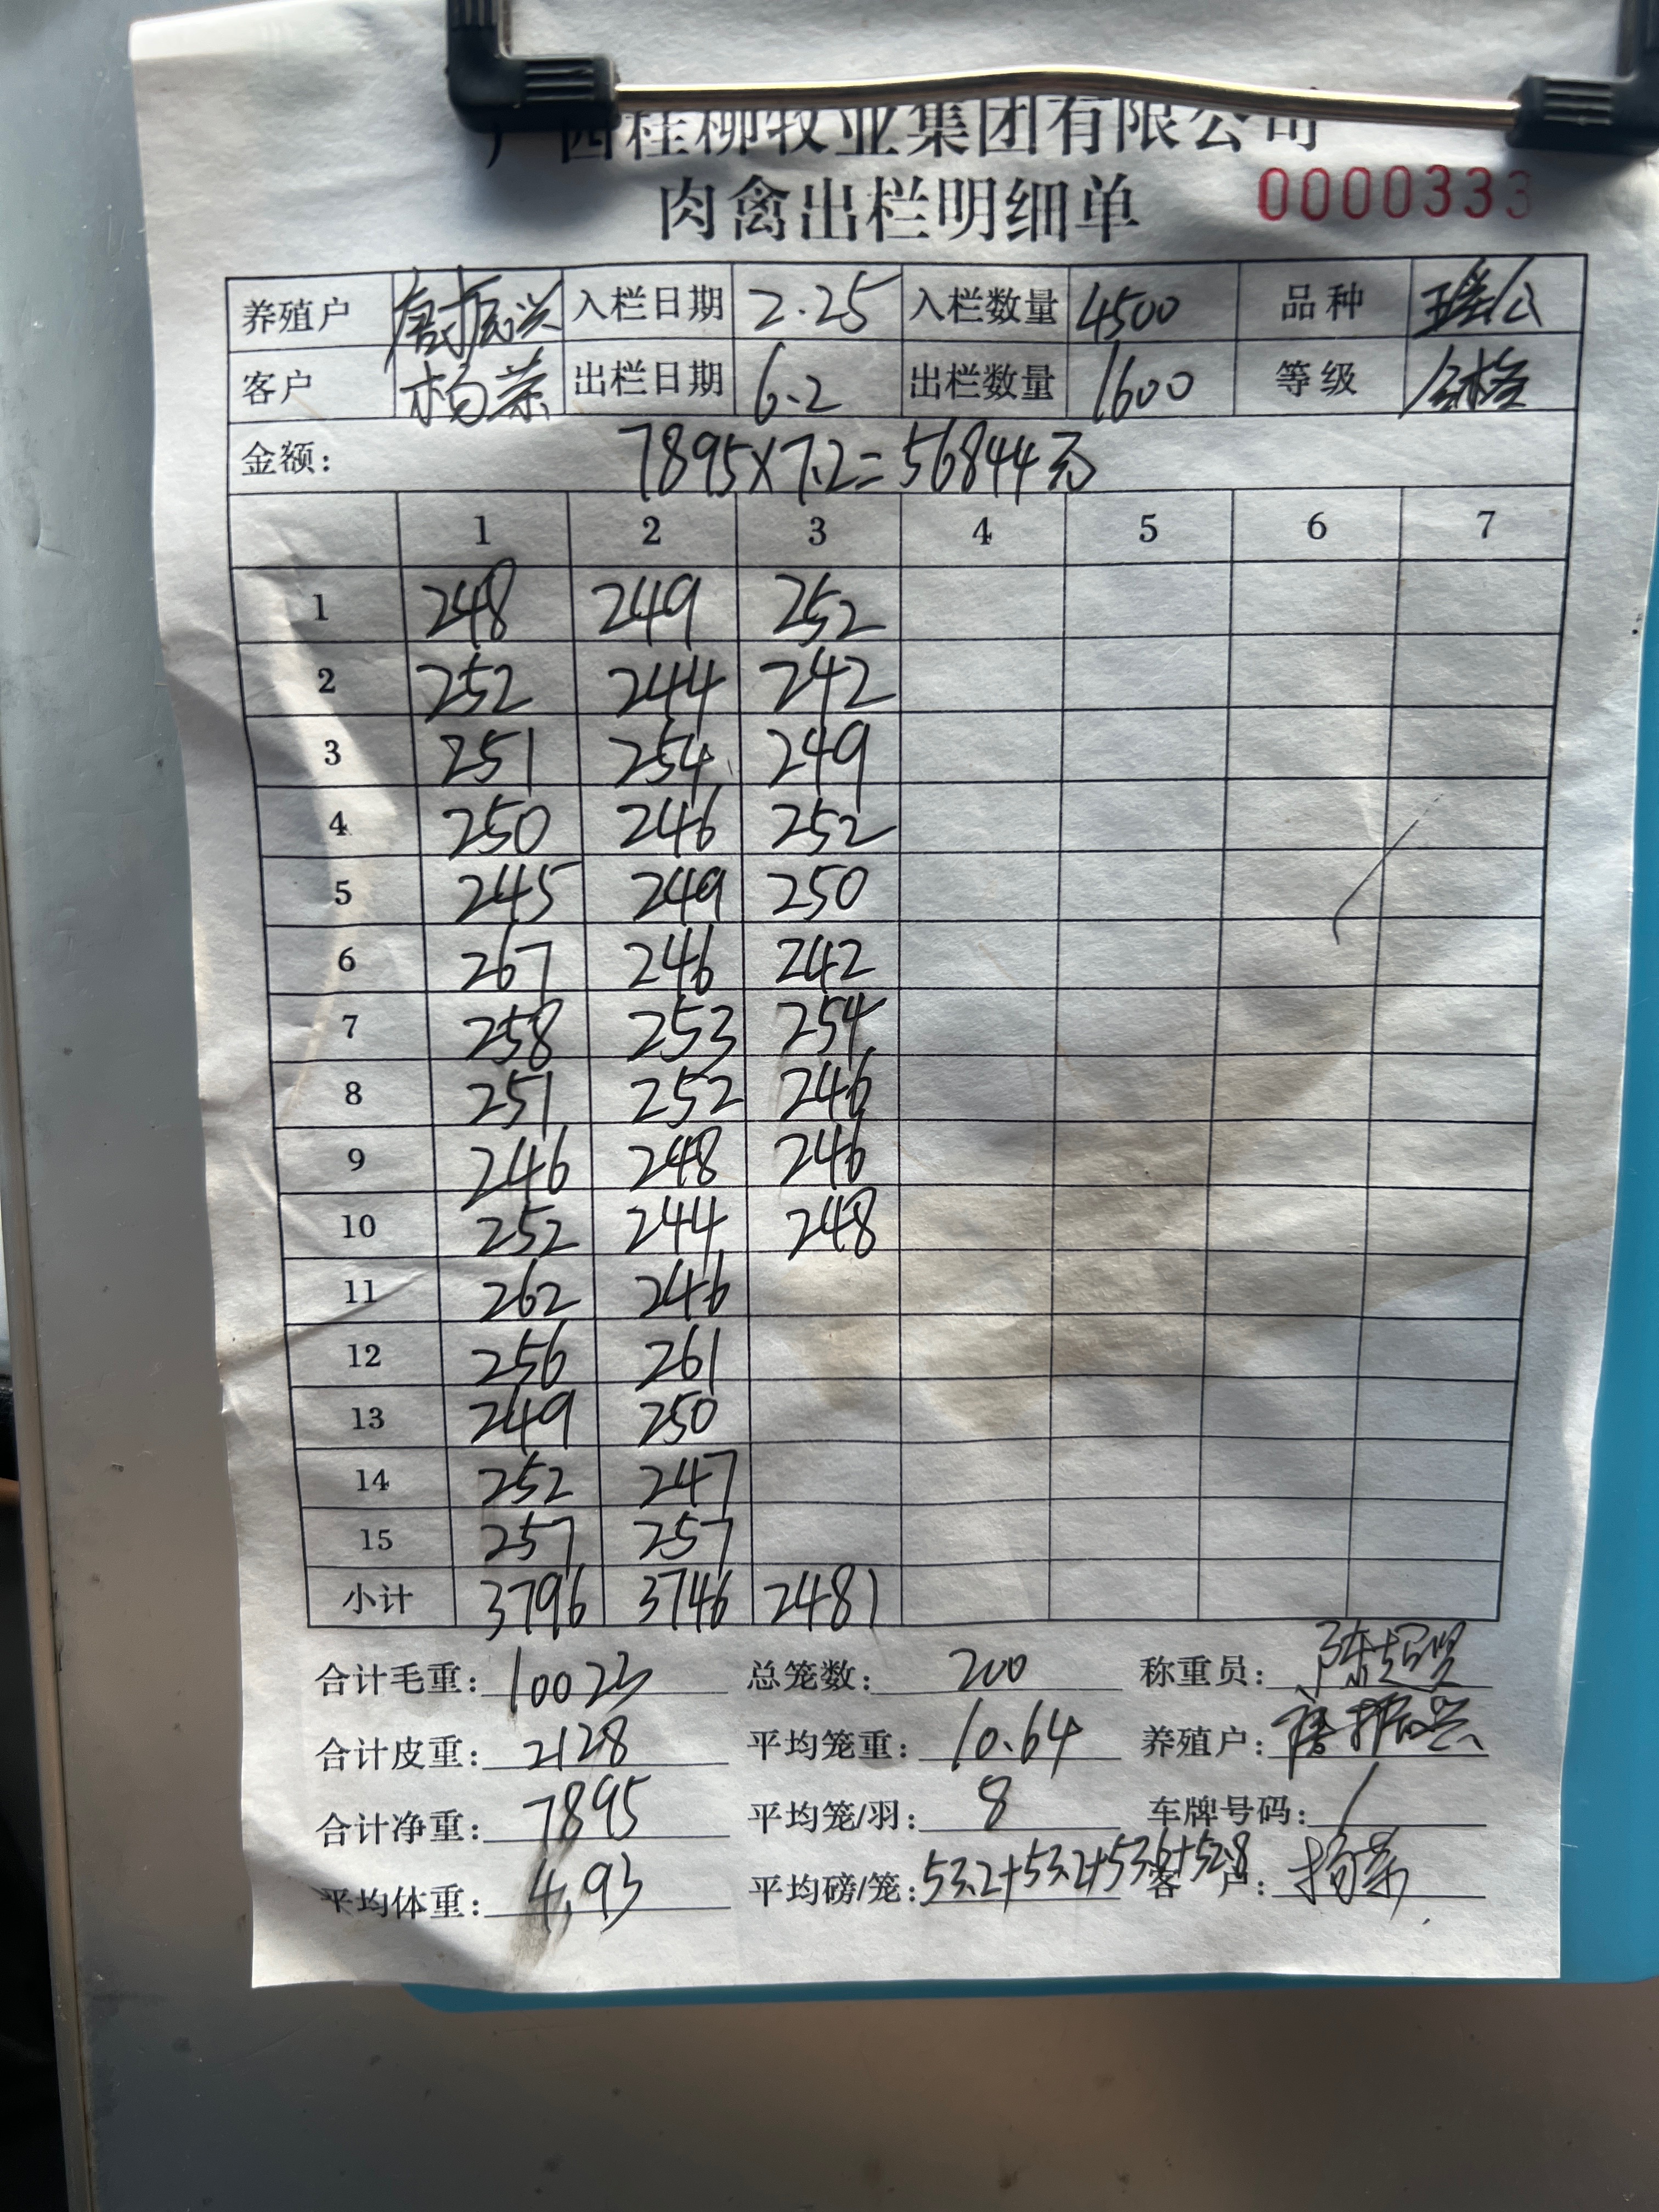 广西桂柳牧业集团有限公司
肉禽出栏明细单 0000333
养殖户 唐振兴 入栏日期 2.25 入栏数量 4500 品种 瑶公
客户 杨荣 出栏日期 6.2 出栏数量 1600 等级 合格
金额: 7895×7.2=56844元
1 2 3 4 5 6 7
1 248 249 252
2 252 244 242
3 251 254 249
4 250 246 252
5 245 249 250
6 267 246 242
7 258 253 254
8 251 252 246
9 246 248 246
10 252 244 248
11 262 246
12 256 261
13 249 250
14 252 247
15 257 257
小计 3796 3746 2481
合计毛重: 10023 总笼数: 200 称重员:
合计皮重: 2128 平均笼重: 10.64 养殖户: 唐振兴
合计净重: 7895 平均笼/羽: 8 车牌号码: /
平均体重: 4.93 平均磅/笼: 53.2+53.2+53.6+52.8 客户: 杨荣